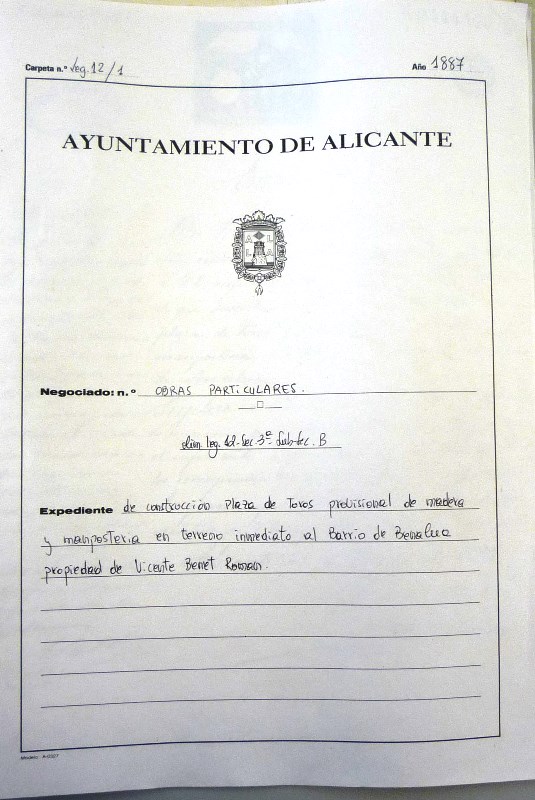 Carpeta n.º leg. 12/1 Año 1887
AYUNTAMIENTO DE ALICANTE
Negociado: n.º OBRAS PARTICULARES.
leg. 12-Sec-3ª Sub-Sec. B
Expediente de construcción Plaza de Toros provisional de madera
y mamposteria en terreno inmediato al Barrio de Benalua
propiedad de Vicente Benet Roman.